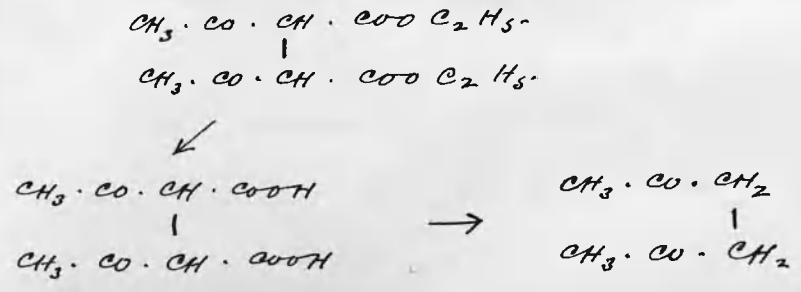 CH₃ · CO · CH · COO C₂ H₅.
CH₃ · CO · CH · COO C₂ H₅.
CH₃ · CO · CH · COOH
CH₃ · CO · CH · COOH
CH₃ · CO · CH₂
CH₃ · CO · CH₂